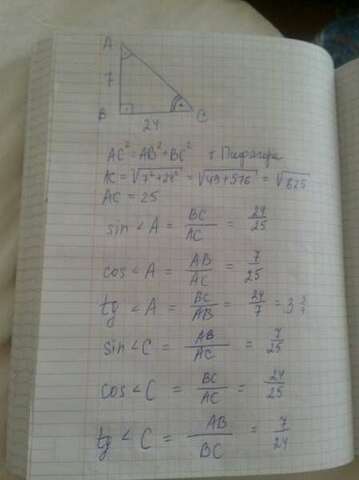 A
7
B
24
C
AC² = AB² + BC² т Пифагора
AC = √7²+24² = √49+576 = √625
AC = 25
sin∠A = BC/AC = 24/25
cos∠A = AB/AC = 7/25
tg∠A = BC/AB = 24/7 = 3 3/7
sin∠C = AB/AC = 7/25
cos∠C = BC/AC = 24/25
tg∠C = AB/BC = 7/24